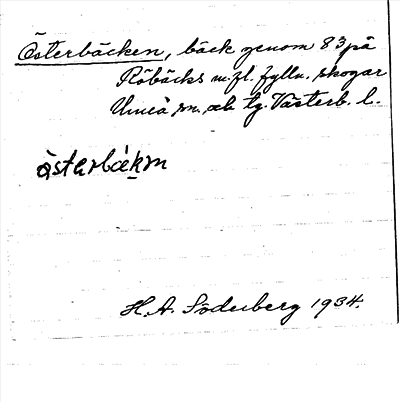 Österbäcken, bäck genom 83 på
Röbäcks m.fl. fylln. skogar
Umeå sn. och tg. Västerb. l.
östərbækm
H. A. Söderberg 1934.